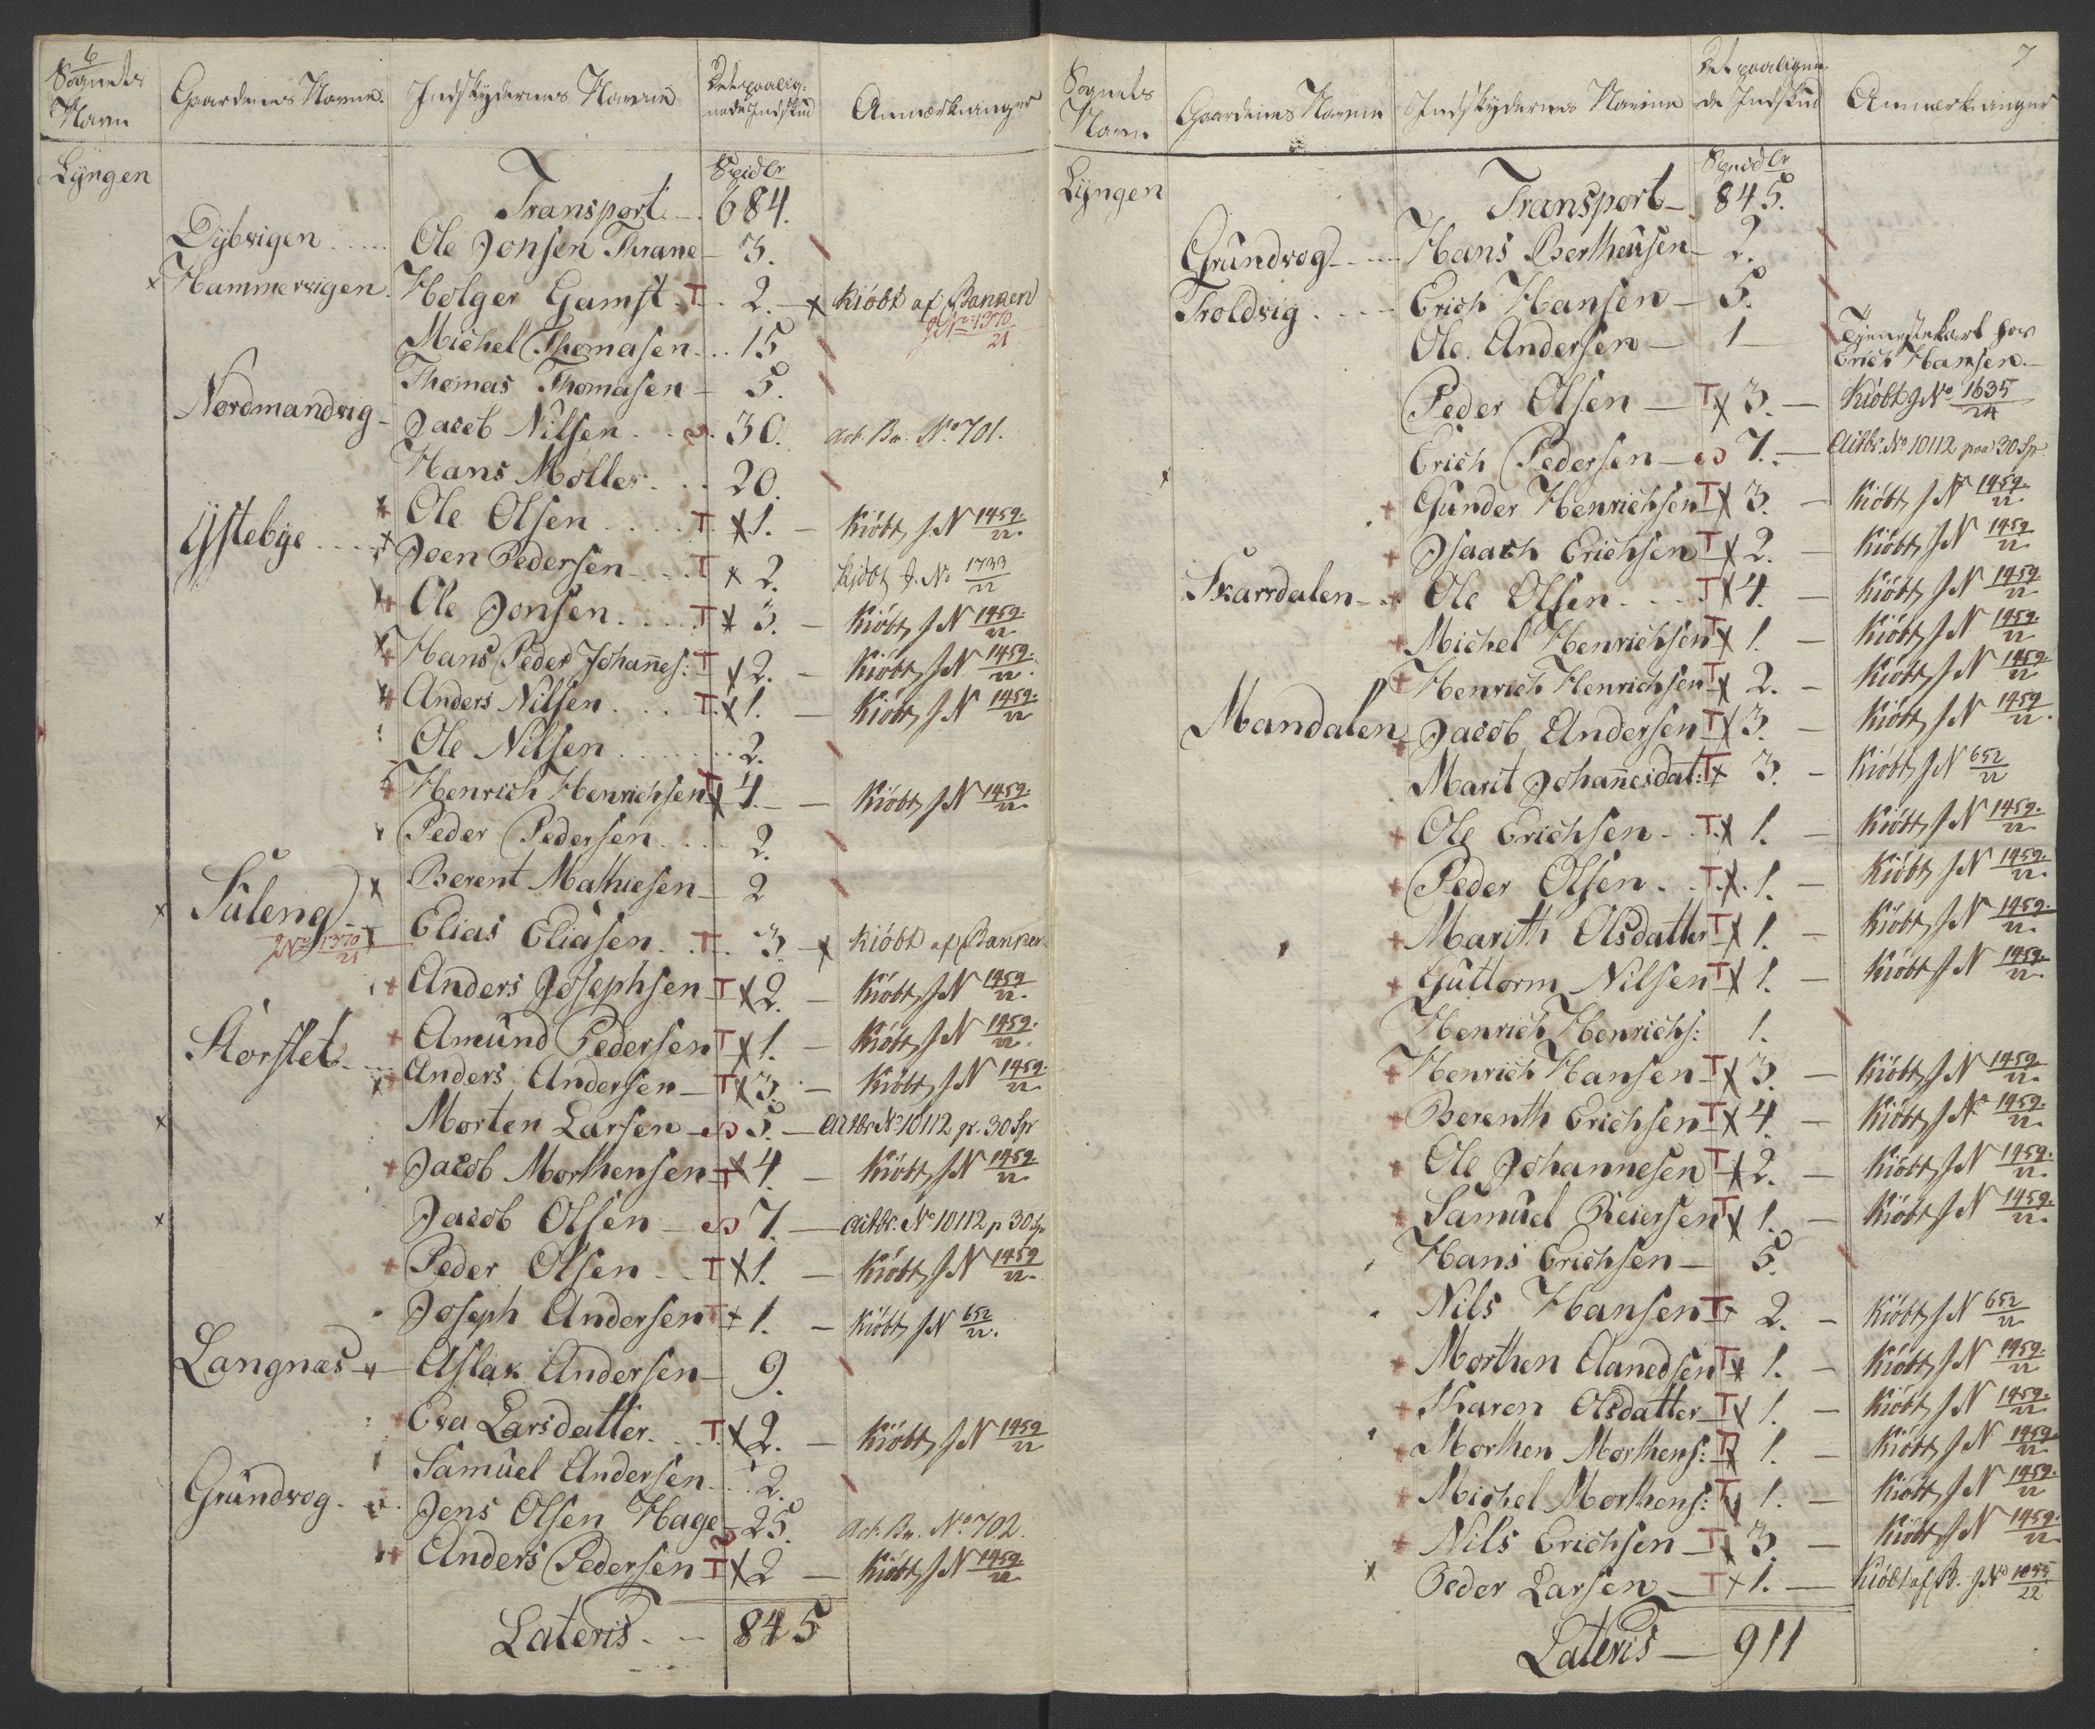 6
Sognets Navn | Gaardenes Navne. | Indskydernes Navne | Det paalig: nede Indskud | Anmærkninger
Lyngen | Speidlr
Transport 684.
Dybvigen Ole Jonsen Thrane 3.
x Hammervigen Holger Gamst T 2. x Kiöbt af Banken
JNo 1370/21
Michel Thomasen 15
Thomas Thomasen 5.
Nordmandvig Jacob Nilsen 30. Act. Br. No 701.
Hans Möller 20.
x Ole Olsen T x 1. Kiöbt JN 1459/22
Ÿstebye x Joen Pedersen T x 2. Kiöbt J.No 1733/22
+ Ole Jonsen T x 3. Kiöbt JN 1459/22
+ Hans Peder Johannes: T x 2. Kiöbt JN 1459/22
+ Anders Nilsen T x 1. Kiöbt JN 1459/22
Ole Nilsen 2.
+ Henrich Henrichsen T x 4. Kiöbt JN 1459/22
Peder Pedersen 2.
x Berent Mathiesen 2
x Fuleng x Elias Eliasen T 3. x Kiöbt af Banken
JNo 1370/21
+ Anders Josephsen T x 2. Kiöbt JN 1459/22
Storslet + Amund Pedersen T x 1. Kiöbt JN 1459/22
x+ Anders Andersen T x 3. Kiöbt JN 1459/22
x Morten Larsen 5. Actbr No 10112 pr. 30 Sp
+ Jacob Morthensen T x 4. Kiöbt JN 1459/22
x Jacob Olsen 7. Actbr. No 10112 p 30 Sp
+ Peder Olsen T x 1. Kiöbt JN 1459/22
Joseph Andersen T x 1. Kiöbt JN 652/22
Langnæs Aslak Andersen 9.
+ Eva Larsdatter T x 2. Kiöbt JN 1459/22
Samuel Andersen 2.
Grundvog Jens Olsen Hage 25. Act. Br. No 702.
+ Anders Pedersen T x 2 Kiöbt JN 1459/22
Lateris 845
7
Sognets Navn | Gaardenes Navne | Indskydernes Navne | Det paaligne de Indskud | Anmærkninger
Lyngen | Speidlr
Transport 845.
Grundvog Hans Bertheusen 2.
Troldvig Erich Hansen 5.
Ole Andersen 1 Tjenestekarl hos
Erich Hansen.
Peder Olsen T x 3. Kiöbt JNo 1635/24
x Erich Pedersen 7. Actbr. No 10112 paa 30 Sp.
+ Gunder Henrichsen T x 3. Kiöbt JN 1459/22
+ Isaach Erichsen T x 2. Kiöbt JN 1459/22
Skarrdalen + Ole Olsen T x 4. Kiöbt JN 1459/22
+ Michel Henrichsen T x 1. Kiöbt JN 1459/22
+ Henrich Henrichsen T x 2. Kiöbt JN 1459/22
Mandalen + Jacob Andersen T x 3. Kiöbt JN 1459/22
Marit Johannesdat: T x 3. Kiöbt JN 652/22
+ Ole Erichsen T x 1. Kiöbt JN 1459/22
+ Peder Olsen T x 1. Kiöbt JN 1459/22
+ Marith Olsdatter T x 1. Kiöbt JN 1459/22
+ Guttorm Nilsen T x 1. Kiöbt JN 1459/22
Henrich Henrichs: 1.
+ Henrich Hansen T x 3. Kiöbt JN 1459/22
+ Berenth Erichsen T x 4. Kiöbt JNo 1459/22
+ Ole Johannesen T x 2. Kiöbt JN 1459/22
+ Samuel Reiersen T x 1. Kiöbt JN 1459/22
Hans Erichsen 5.
Nils Hansen T x 2. Kiöbt JN 652/22
+ Morthen Aanedsen T x 1. Kiöbt JN 1459/22
+ Karen Olsdatter T x 1. Kiöbt JN 1459/22
+ Morthen Morthens: T x 1. Kiöbt JN 1459/22
+ Michel Morthens: T x 1. Kiöbt JN 1459/22
+ Nils Erichsen T x 3 Kiöbt JN 1459/22
x Peder Larsen T x 1. Kiöbt af B. JNo 1055/22
Lateris 911